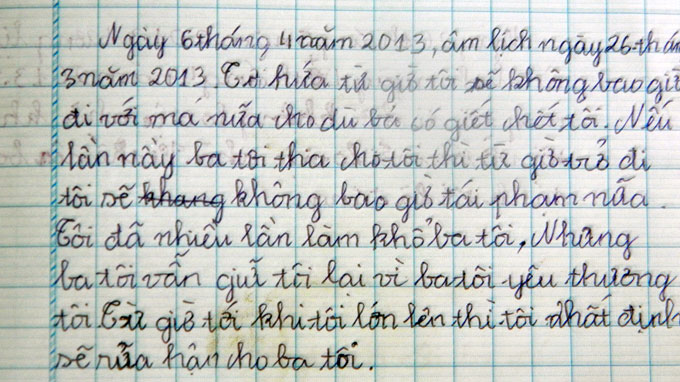 Ngày 6 tháng 4 năm 2013, âm lịch ngày 26 thán
3 năm 2013. Tôi hứa từ giờ tôi sẽ không bao giờ
đi với má nữa cho dù bá có giết chết tôi. Nếu
lần này ba tôi thia cho tôi thì từ giờ trở đi
tôi sẽ khang không bao giờ tái phạm nữa.
Tôi đã nhiều lần làm khổ ba tôi, Nhưng
ba tôi vẫn giữ tôi lại vì ba tôi yêu thương
tôi. Từ giờ tới khi tôi lớn lên thì tôi nhất định
sẽ rửa hận cho ba tôi.